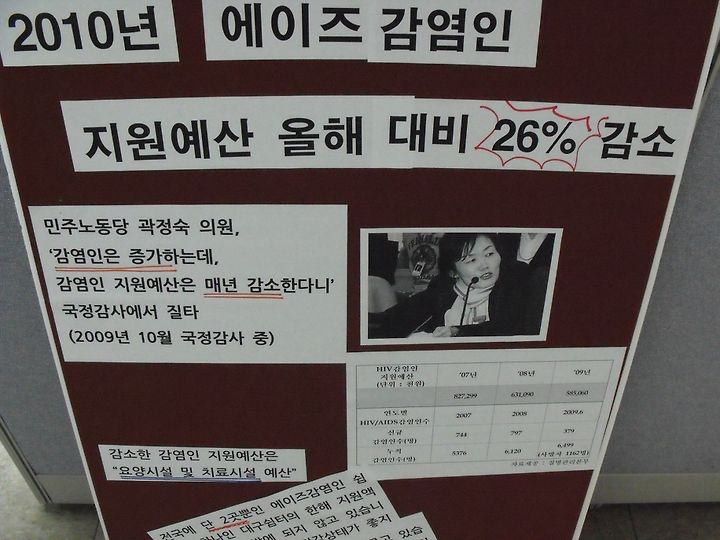 2010년 에이즈 감염인
지원예산 올해 대비 26% 감소
민주노동당 곽정숙 의원,
‘감염인은 증가하는데,
감염인 지원예산은 매년 감소한다니’
국정감사에서 질타
(2009년 10월 국정감사 중)
HIV감염인 지원예산 (단위 : 천원) '07년 '08년 '09년
827,299 631,090 585,060
연도별 HIV/AIDS감염인수 2007 2008 2009.6
신규 감염인수(명) 744 797 379
누적 감염인수(명) 5376 6,120 6,499 (사망자 1162명)
자료제공 : 질병관리본부
감소한 감염인 지원예산은
“요양시설 및 치료시설 예산”
전국에 단 2곳뿐인 에이즈감염인 쉼
대구쉼터의 한해 지원액
밖에 되지 않고 있습니
건강상태가 좋지
고 있습